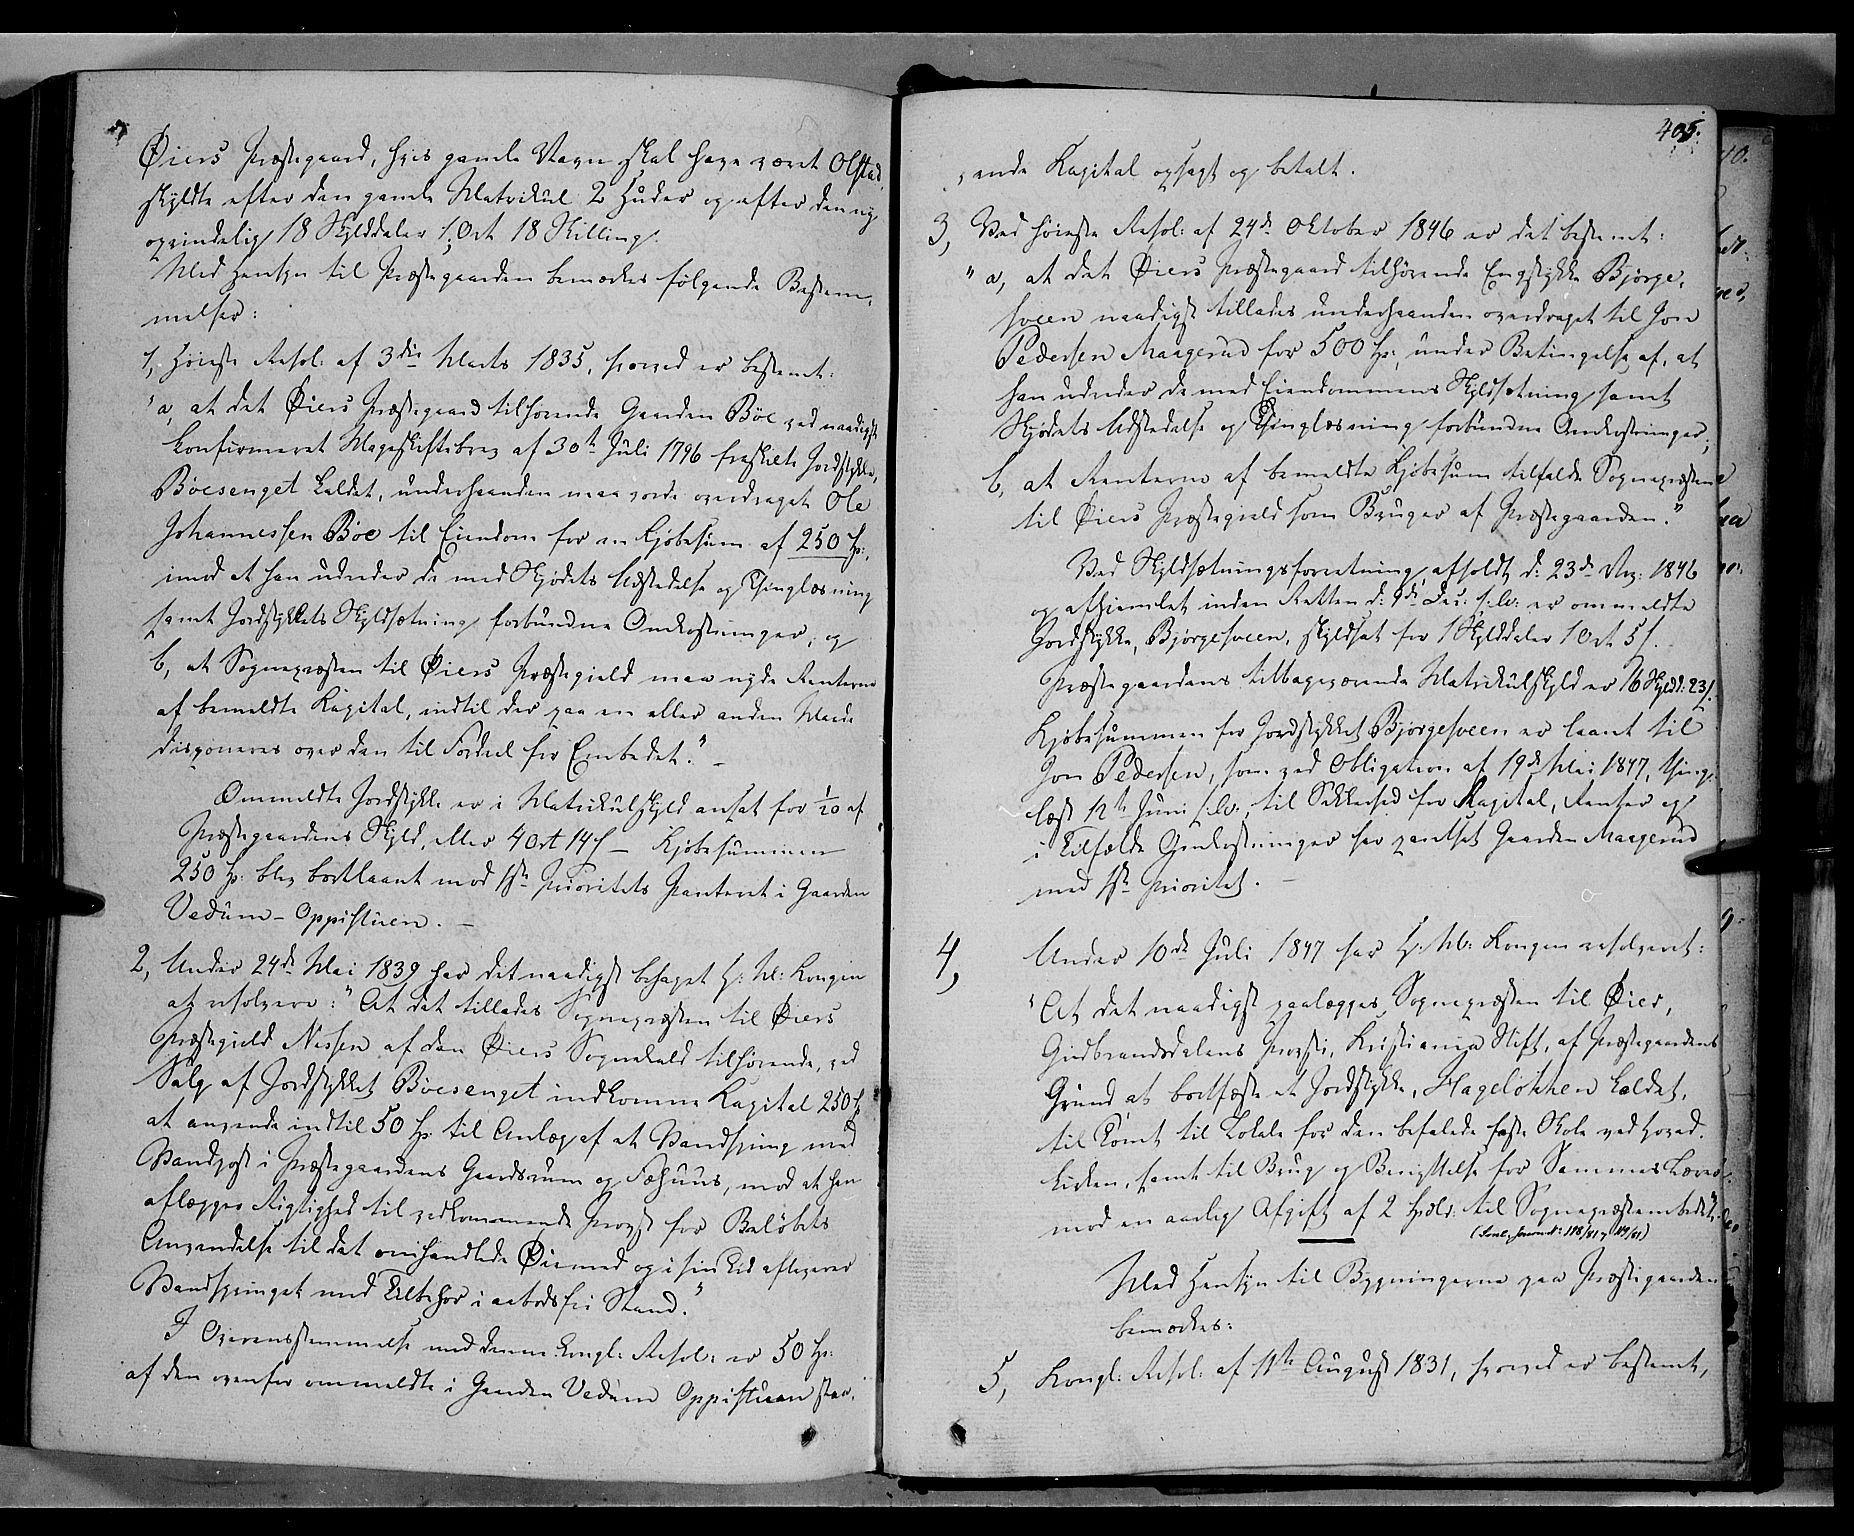 Øiers Præstegaard, hvis gamle Navn skal have været Olstad,
skyldte efter den gamle Matrikul 2 Huder og efter den ny
oprindelig 18 Skylddaler 1 Ort 18 Skilling.
Med Hensyn til Præstegaarden bemærkes følgende Bestem-
melser:
1, Høieste Resol: af 3die Marts 1835, hvorved er bestemt:
"a, at det Øiers Præstegaard tilhørende Gaarden Böe ved naadigst
confirmeret Mageskiftebrev af 30te Juli 1796 fraskilte Jordstykke,
Böesenget kaldet, underhaanden maa vorde overdraget Ole
Johannessen Böe til Eiendom for en Kjøbesum af 250 Sp:,
imod at han udreder de med Skjødets Udstedelse og Thinglæsning
samt Jordstykkets Skyldsætning forbundne Omkostninger, og
b, at Sognepræsten til Øiers Præstegield maa nyde Renterne
af bemeldte Kapital, indtil der paa en eller anden Maade
disponeres over den til Fordeel for Embedet." –
Ommeldte Jordstykke er i Matrikulskyld ansat for 1/20 af
Præstegaardens Skyld, eller 4 Ort 14 ß – Kjøbesummen
250 Sp: blev bortlaant mod 1ste Prioritets Panteret i Gaarden
Vedum-Oppistuen. –
2, Under 24de Mai 1839 har det naadigst behaget H: M: Kongen
at resolvere: "At det tillades Sognepræsten til Øiers
Præstegield Nissen af den Øiers Sognekald tilhørende, ved
Salg af Jordstykket Böesenget indkomne Kapital 250 Sp
at anvende indtil 50 Sp: til Anlæg af et Vandspring med
Vandpost i Præstegaardens Gaardsrum og Fæhuus, mod at han
aflægger Rigtighed til vedkommende Provst for Beløbets
Anvendelse til det omhandlede Øiemed og i sin Tid afleverer
Vandspringet med Tilbehør i aabodsfri Stand."
I Overensstemmelse med denne Kongl: Resol: er 50 Sp:
af den ovenfor ommeldte i Gaarden Vedum Oppistuen staa-
405.
ende Kapital opsagt og betalt.
3, Ved høieste Resol: af 24de Oktober 1846 er det bestemt:
"a, at det Øiers Præstegaard tilhørende Engstykke Björge-
sveen naadigst tillades underhaanden overdraget til Jon
Pedersen Maagerud for 500 Sp:, under Betingelse af, at
han udreder de med Eiendommens Skyldsætning samt
Skjødets Udstedelse og Thinglæsning forbundne Omkostninger;
b, at Renterne af bemeldte Kjøbesum tilfalde Sognepræsten
til Øiers Præstegield som Bruger af Præstegaarden."
Ved Skyldsætningsforretning, afholdt d: 23de Nov: 1846
og afhjemlet inden Retten d: 9de Dec: s: A: er ommeldte
Jordstykke, Björgesveen, skyldsat for 1 Skylddaler 1 Ort 5 ß.
Præstegaardens tilbageværende Matrikulskyld er 16 Skyldd: 23 ß.
Kjøbesummen for Jordstykket Björgesveen er laant til
Jon Pedersen, som ved Obligation af 19de Mai 1847, thing-
læst 12te Juni s: A:, til Sikkerhed for Kapital, Renter og
i Tilfælde Omkostninger har pantsat Gaarden Maagerud
med 1ste Prioritet. –
4, Under 10de Juli 1847 har H: M: Kongen resolveret:
"At det naadigst paalægges Sognepræsten til Øier,
Gudbrandsdalens Provsti, Kristiania Stift, af Præstegaardens
Grund at bortfæste et Jordstykke, Hageløkken kaldet,
til Tomt til Lokale for den befalede faste Skole ved Hoved-
kirken, samt til Brug og Benyttelse for Sammes Lærer
mod en aarlig Afgift af 2 Spdlr: til Sognepræsteembedet."
Med Hensyn til Bygningerne paa Præstegaarden
bemærkes:
5, Kongl: Resol: af 11te August 1831, hvorved er bestemt,